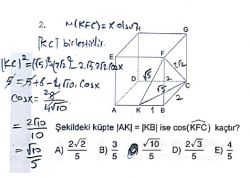 2. m(KFC) = x olsun.
[KC] birleştirilir.
|KC|² = (√5)² + (2√2)² - 2.√5.2√2.cosx
5 = 5 + 8 - 4√10.cosx
cosx = 8/4√10
= 2√10/10
= √10/5
E F G
D C
A K 1 B
√5 2 2√2 √5 2
Şekildeki küpte |AK| = |KB| ise cos(KFC) kaçtır?
A) 2√2/5 B) 3/5 √10/5 D) 2√3/5 E) 4/5